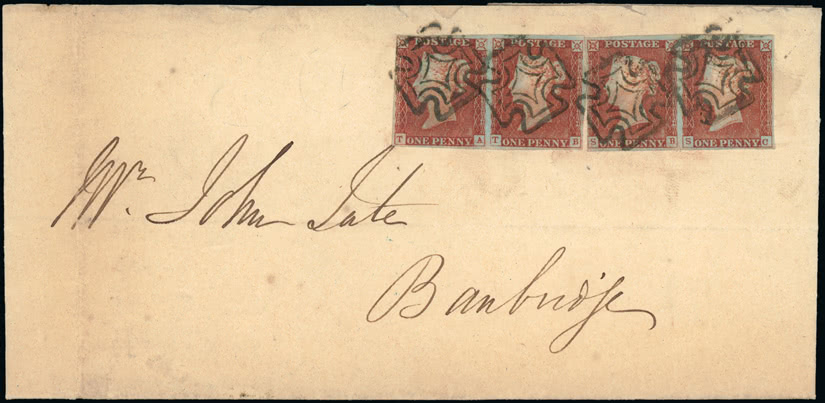 POSTAGE POSTAGE POSTAGE POSTAGE
T A T B S B S C
ONE PENNY ONE PENNY ONE PENNY ONE PENNY
Mr. John Tate
Banbridge